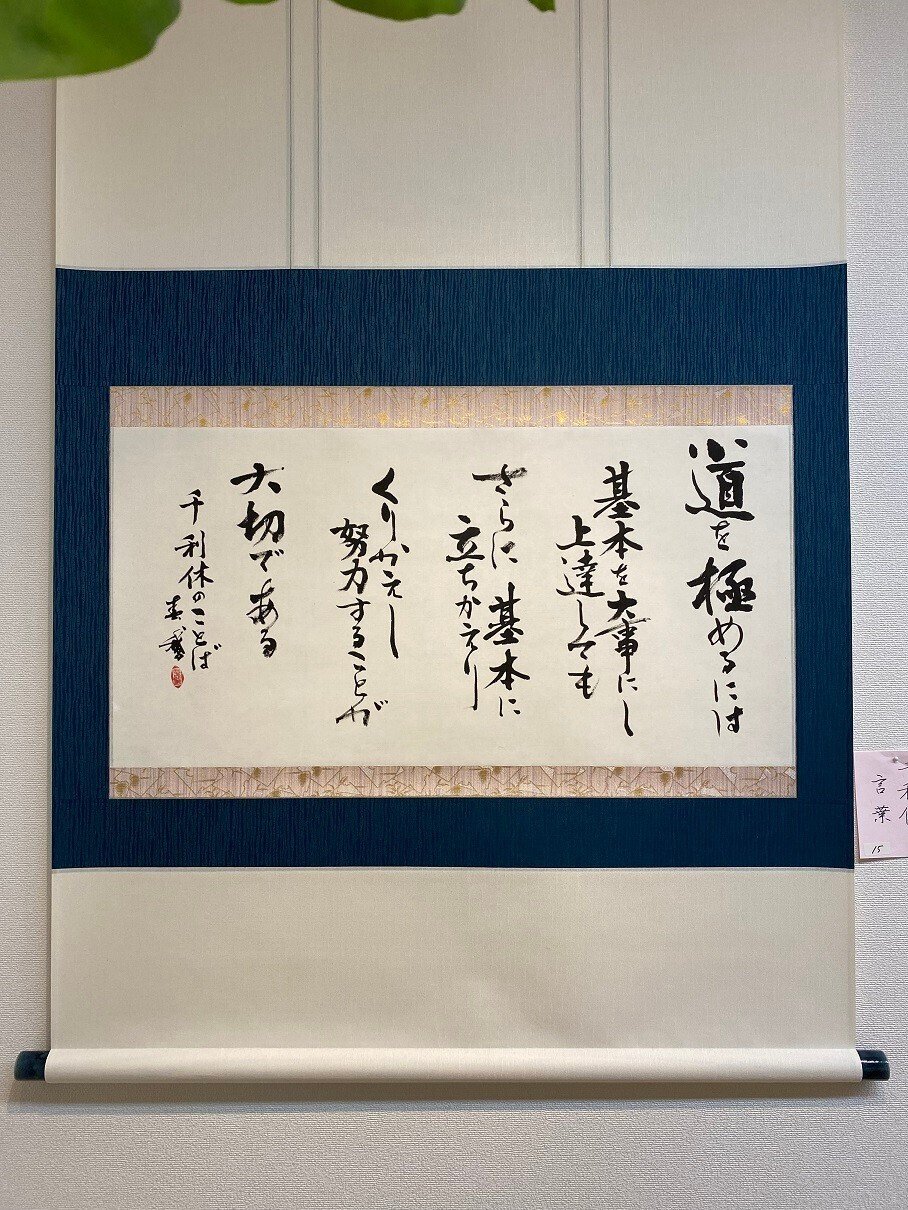 道を極めるには
基本を大事にし
上達しても
さらに基本に
立ちかえり
くりかえし
努力することが
大切である
千利休のことば
言葉
15